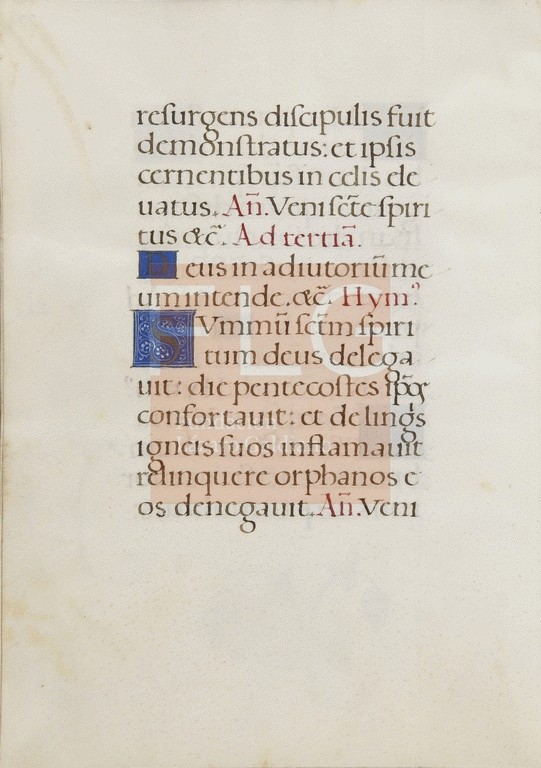 reſurgens diſcipulis fuit
demonſtratus: et ipſis
cernentibus in celis ele
uatus. Añ. Veni ſcte ſpiri
tus &c̃. Ad tertiã.
Deus in adiutoriũ me
um intende. &c̃. Hym⁹.
SVmmũ ſctm ſpiri
tum deus delega
uit: die pentecostes ip̃os
confortauit: et de lings
igneis ſuos inflamauit
relinquere orphanos e
os denegauit. Añ. Veni
FLG